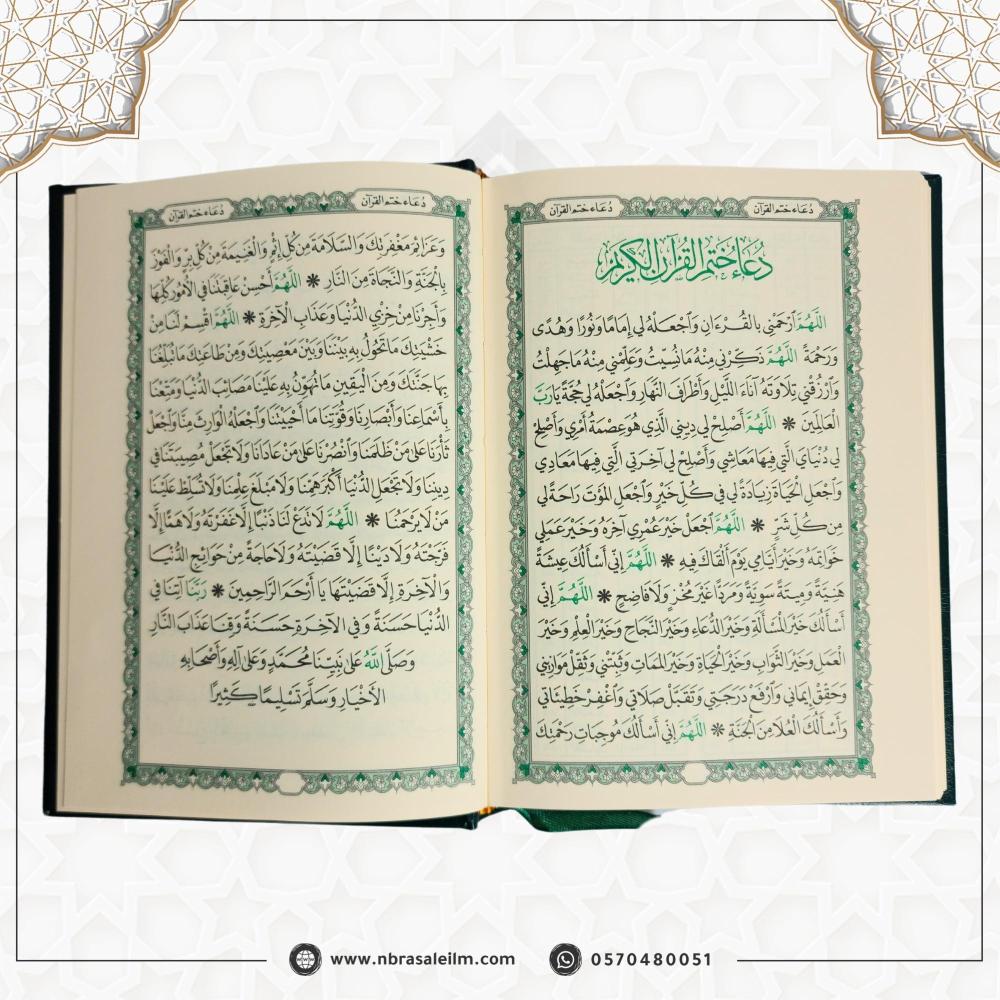 دُعَاء ختم القرآن
دُعَاء ختم القرآن
دُعَاءُ خَتْمِ القُرْآنِ الكَرِيمِ
اللَّهُمَّ ٱرْحَمْنِي بالقُرْءَانِ وَٱجْعَلْهُ لِي إِمَامًا وَنُورًا وَهُدًى
وَرَحْمَةً اللَّهُمَّ ذَكِّرْنِي مِنْهُ مَا نَسِيتُ وَعَلِّمْنِي مِنْهُ مَا جَهِلْتُ
وَٱرْزُقْنِي تِلَاوَتَهُ آنَاءَ اللَّيْلِ وَأَطْرَافَ النَّهَارِ وَٱجْعَلْهُ لِي حُجَّةً يَا رَبَّ
الْعَالَمِينَ * اللَّهُمَّ أَصْلِحْ لِي دِينِي الَّذِي هُوَ عِصْمَةُ أَمْرِي وَأَصْلِحْ
لِي دُنْيَايَ الَّتِي فِيهَا مَعَاشِي وَأَصْلِحْ لِي آخِرَتِي الَّتِي فِيهَا مَعَادِي
وَٱجْعَلِ الْحَيَاةَ زِيَادَةً لِي فِي كُلِّ خَيْرٍ وَٱجْعَلِ الْمَوْتَ رَاحَةً لِي
مِن كُلِّ شَرٍّ * اللَّهُمَّ ٱجْعَلْ خَيْرَ عُمْرِي آخِرَهُ وَخَيْرَ عَمَلِي
خَوَاتِمَهُ وَخَيْرَ أَيَّامِي يَوْمَ أَلْقَاكَ فِيهِ * اللَّهُمَّ إِنِّي أَسْأَلُكَ عِيشَةً
هَنِيَّةً وَمِيتَةً سَوِيَّةً وَمَرَدًّا غَيْرَ مُخْزٍ وَلَا فَاضِحٍ * اللَّهُمَّ إِنِّي
أَسْأَلُكَ خَيْرَ الْمَسْأَلَةِ وَخَيْرَ الدُّعَاءِ وَخَيْرَ النَّجَاحِ وَخَيْرَ الْعِلْمِ وَخَيْرَ
الْعَمَلِ وَخَيْرَ الثَّوَابِ وَخَيْرَ الْحَيَاةِ وَخَيْرَ الْمَمَاتِ وَثَبِّتْنِي وَثَقِّلْ مَوَازِينِي
وَحَقِّقْ إِيمَانِي وَٱرْفَعْ دَرَجَتِي وَتَقَبَّلْ صَلَاتِي وَٱغْفِرْ خَطِيئَاتِي
وَأَسْأَلُكَ الْعُلَا مِنَ الْجَنَّةِ * اللَّهُمَّ إِنِّي أَسْأَلُكَ مُوجِبَاتِ رَحْمَتِكَ
دُعَاء ختم القرآن
دُعَاء ختم القرآن
وَعَزَائِمَ مَغْفِرَتِكَ وَالسَّلَامَةَ مِن كُلِّ إِثْمٍ وَالْغَنِيمَةَ مِنْ كُلِّ بِرٍّ وَالْفَوْزَ
بِالْجَنَّةِ وَالنَّجَاةَ مِنَ النَّارِ * اللَّهُمَّ أَحْسِنْ عَاقِبَتَنَا فِي الْأُمُورِ كُلِّهَا
وَأَجِرْنَا مِنْ خِزْيِ الدُّنْيَا وَعَذَابِ الْآخِرَةِ * اللَّهُمَّ اقْسِمْ لَنَا مِنْ
خَشْيَتِكَ مَا تَحُولُ بِهِ بَيْنَنَا وَبَيْنَ مَعْصِيَتِكَ وَمِنْ طَاعَتِكَ مَا تُبَلِّغُنَا
بِهَا جَنَّتَكَ وَمِنَ الْيَقِينِ مَا تُهَوِّنُ بِهِ عَلَيْنَا مَصَائِبَ الدُّنْيَا وَمَتِّعْنَا
بِأَسْمَاعِنَا وَأَبْصَارِنَا وَقُوَّتِنَا مَا أَحْيَيْتَنَا وَٱجْعَلْهُ الْوَارِثَ مِنَّا وَٱجْعَلْ
ثَأْرَنَا عَلَى مَنْ ظَلَمَنَا وَٱنْصُرْنَا عَلَى مَنْ عَادَانَا وَلَا تَجْعَلْ مُصِيبَتَنَا فِي
دِينِنَا وَلَا تَجْعَلِ الدُّنْيَا أَكْبَرَ هَمِّنَا وَلَا مَبْلَغَ عِلْمِنَا وَلَا تُسَلِّطْ عَلَيْنَا
مَنْ لَا يَرْحَمُنَا * اللَّهُمَّ لَا تَدَعْ لَنَا ذَنْبًا إِلَّا غَفَرْتَهُ وَلَا هَمًّا إِلَّا
فَرَّجْتَهُ وَلَا دَيْنًا إِلَّا قَضَيْتَهُ وَلَا حَاجَةً مِنْ حَوَائِجِ الدُّنْيَا
وَالْآخِرَةِ إِلَّا قَضَيْتَهَا يَا أَرْحَمَ الرَّاحِمِينَ * رَبَّنَا آتِنَا فِي
الدُّنْيَا حَسَنَةً وَفِي الْآخِرَةِ حَسَنَةً وَقِنَا عَذَابَ النَّارِ
وَصَلَّى اللَّهُ عَلَى نَبِيِّنَا مُحَمَّدٍ وَعَلَى آلِهِ وَأَصْحَابِهِ
الْأَخْيَارِ وَسَلَّمَ تَسْلِيمًا كَثِيرًا
www.nbrasaleilm.com
0570480051